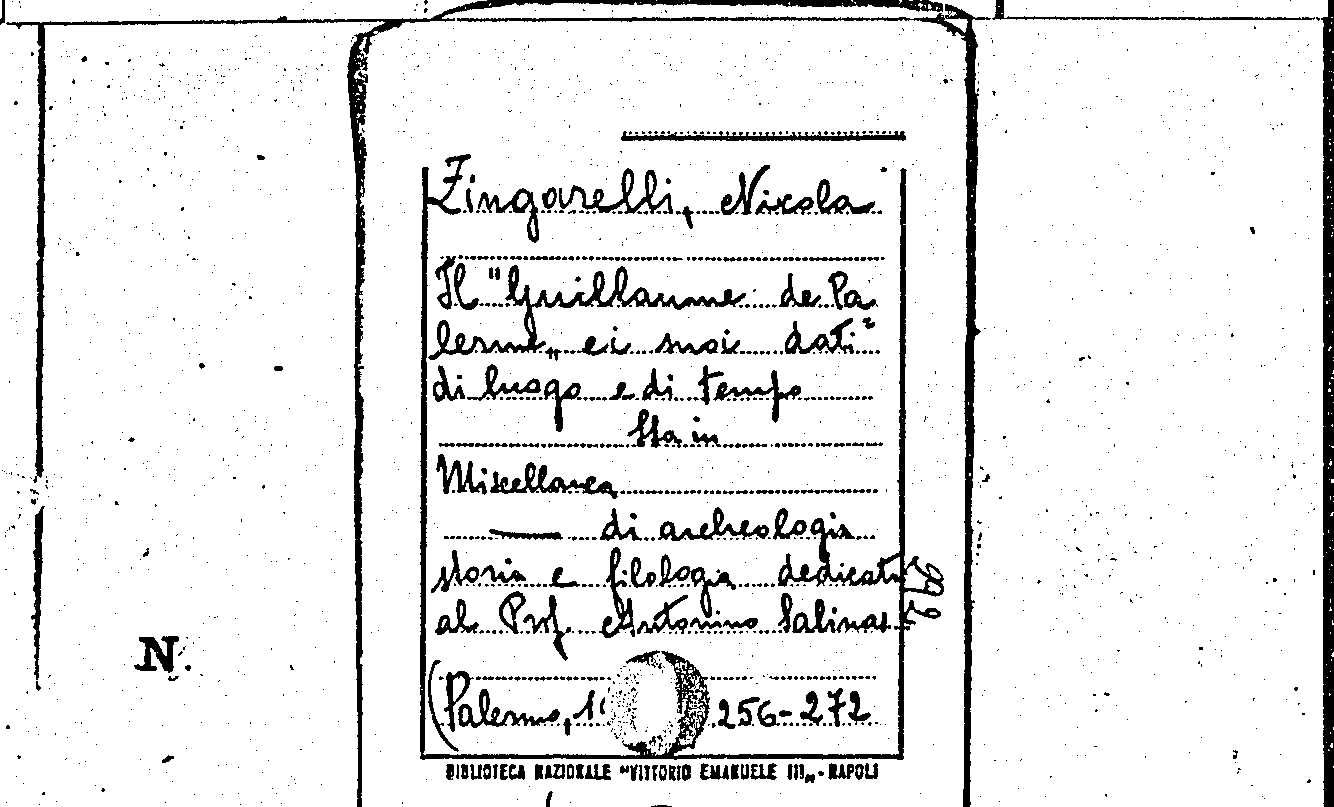 Zingarelli, Nicola
Il "Guillaume de Pa
lerme„ e i suoi dati
di luogo e di tempo
Sta in
Miscellanea
— di archeologia
storia e filologia dedicata
al Prof. Antonino Salinas
(Palermo, 1 256-272
N.
BIBLIOTECA NAZIONALE "VITTORIO EMANUELE III„ - NAPOLI